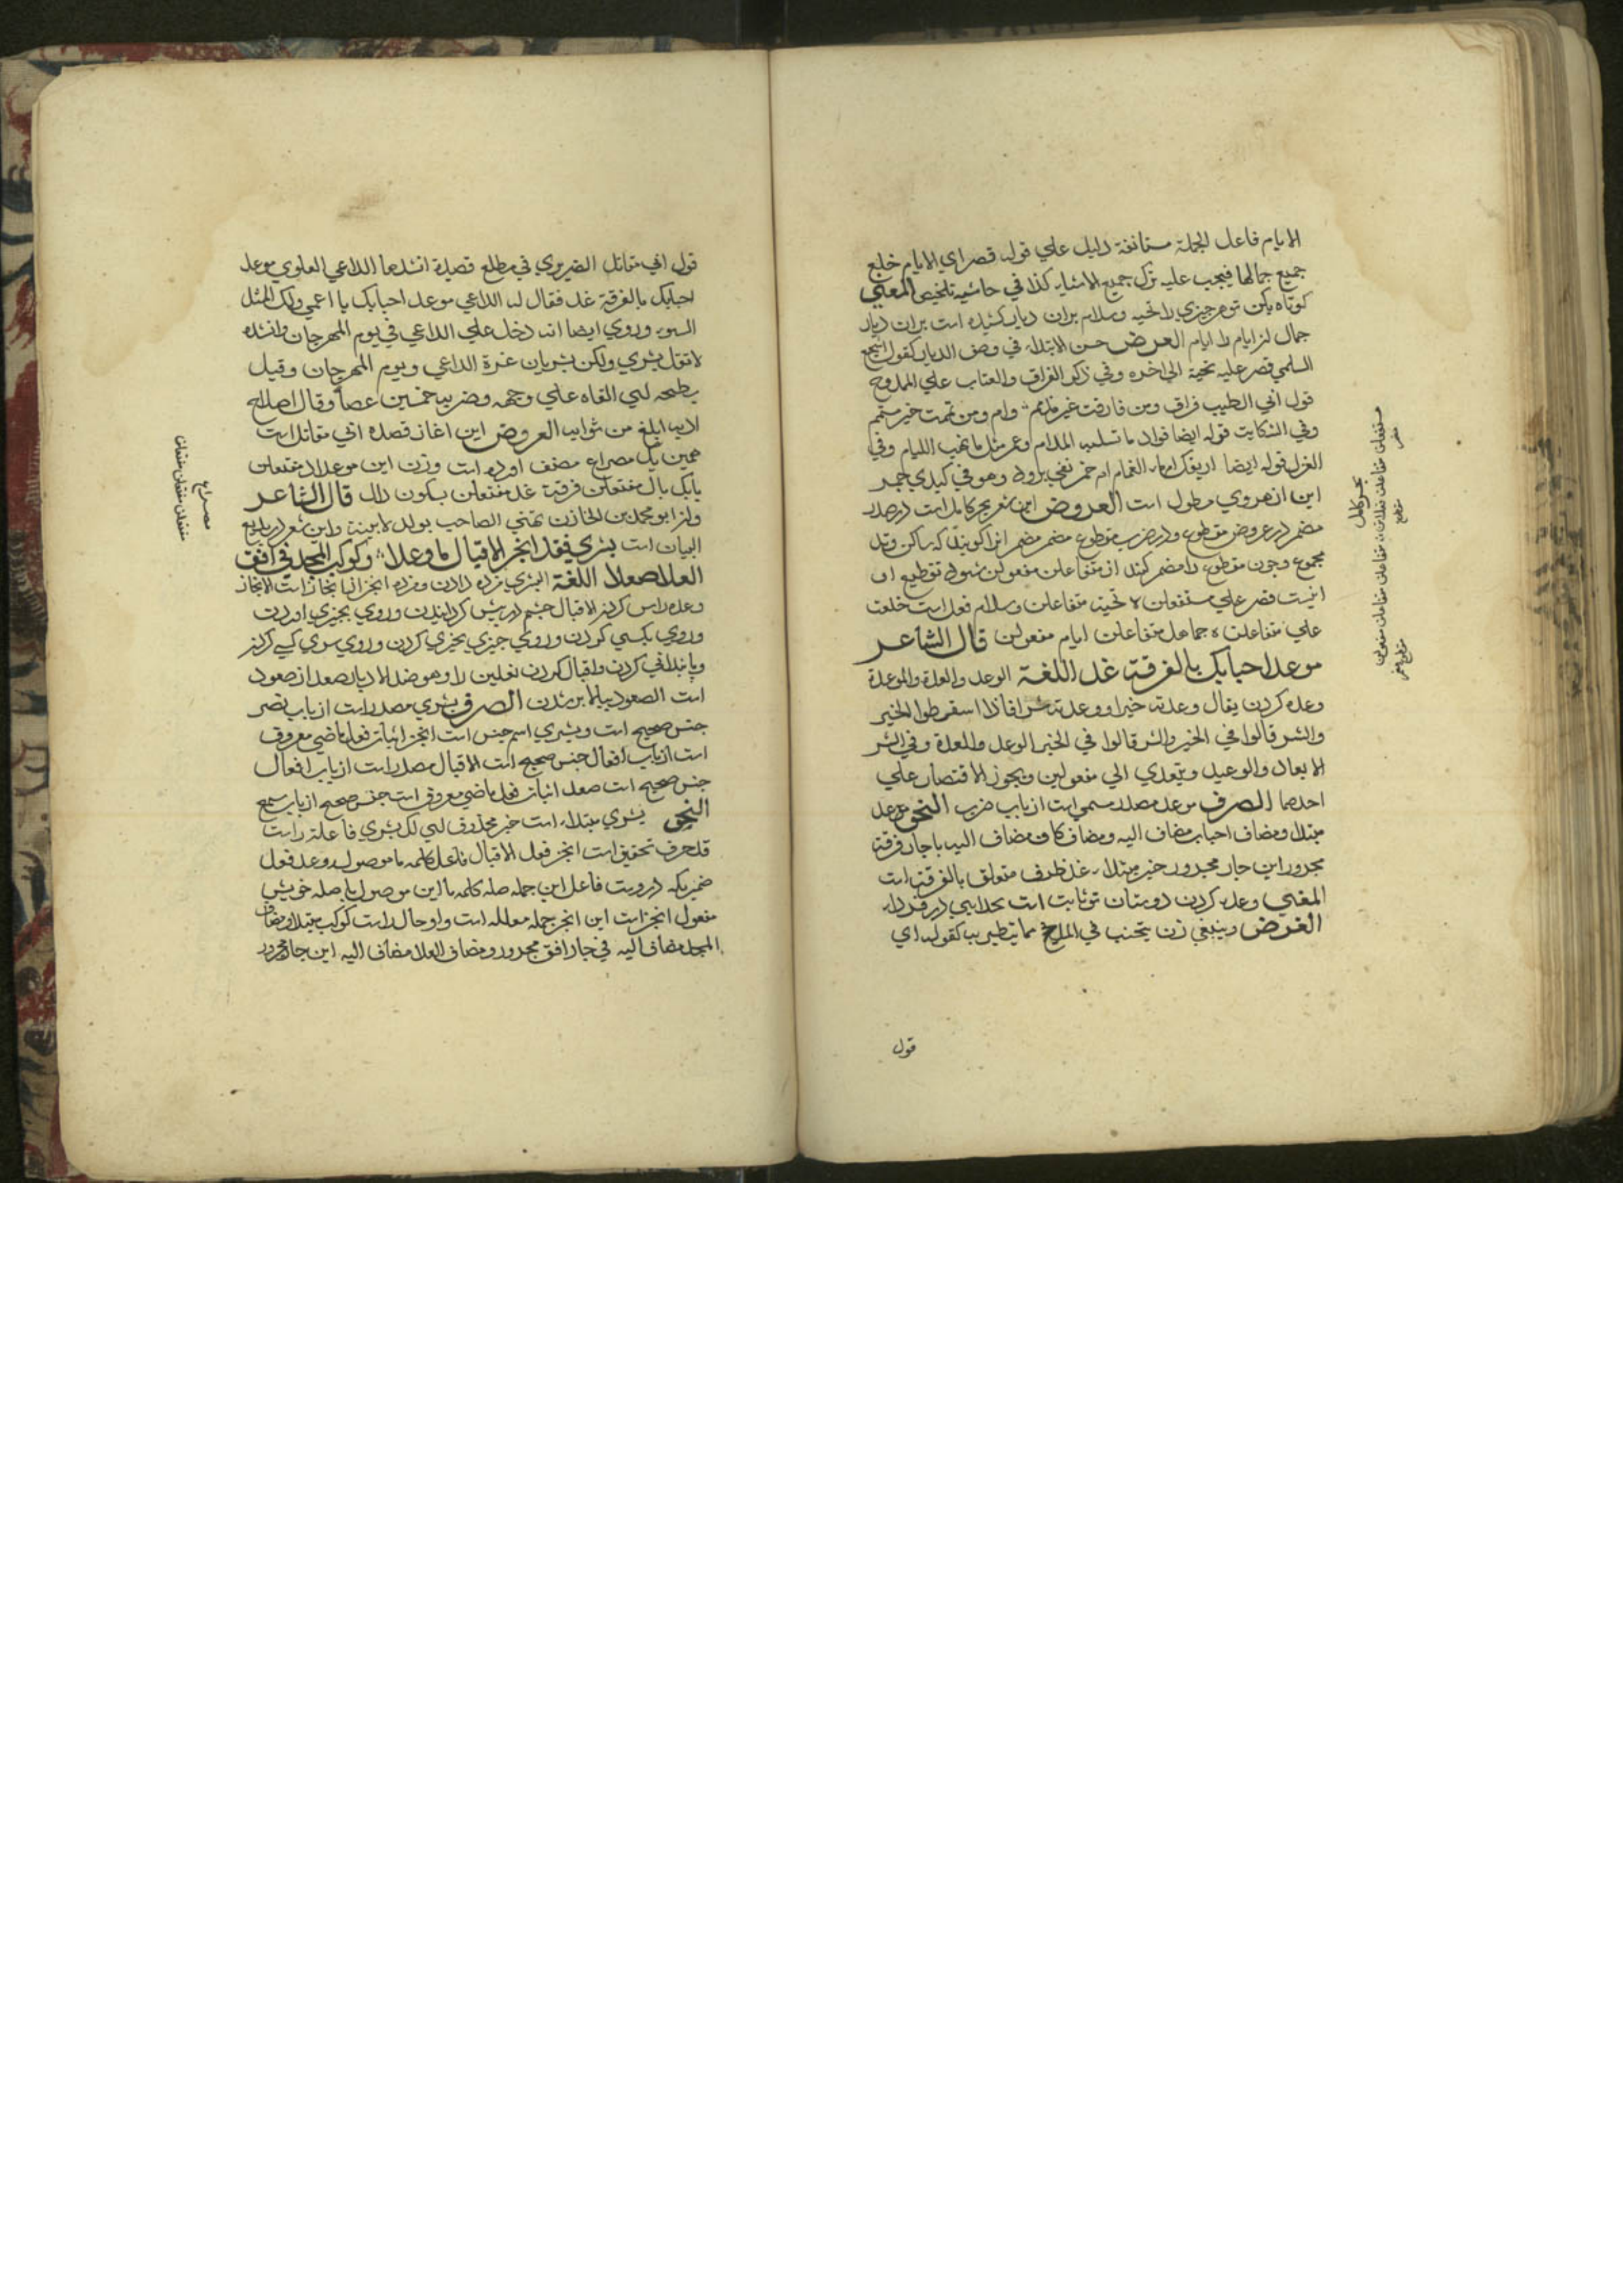 الايام فاعل الجملة مستانفة دليل علي قوله قصر اي الايام خلع
جميع جمالها فيجب عليه ترك جميع الاشياء كذا في حاشيه تلخيص المعني
كوتاه بكن تو هر چيزي را تحيه وسلام بران ديار كشيده است بران ديار
جمال از ايام را ايام الغرض حسن الابتداء في وصف الديار كقول اشجع
السلمي قصر عليه تحية الي اخره وفي ذكر الفراق والعتاب علي الممدوح
قول ابي الطيب فراق ومن فارقت غير مذمم وام ومن يممت خير ميمم
وفي الشكايت قوله ايضا فواد ما تسليه المدام وعمر مثل ما تهب الليام وفي
الغزل قوله ايضا اريقك ام ماء الغمام ام خمر بفي برود وهو في كبدي جمر
اين از هروي مطول است العروض اين شعر بحر كامل است در صدر
مضمر در عروض مقطوع ودر ضرب مقطوع مضمر مضمر انرا كويند كه ساكن وتد
مجموع وچون مقطوع را مضمر كنند از متفاعلن مفعولن شود تقطيع او
اينست قصر علي مستفعلن ه تحية متفاعلن وسلام فعلاست خلعت
علي متفاعلن ه جما هل متفاعلن ايام مفعولن قال الشاعر
موعد احبابك بالفرقة غد اللغة الوعد والعدة والموعدة
وعده كردن يقال وعدته خيرا ووعدته شرا فاذا اسقطوا الخير
والشر قالوا في الخير والشر قالوا في الخير الوعد والعدة وفي الشر
الايعاد والوعيد ويتعدي الي مفعولين ويجوز الاقتصار علي
احدهما الصرف موعد مصدر ميمي است از باب ضرب النحو موعد
مبتدا ومضاف احباب مضاف اليه ومضاف كاف مضاف اليه با جار فرقة
مجرور اين جار مجرور خبر مبتداء غد ظرف متعلق بالفرقة است
المعني وعده كردن دوستان تو ثابت است بجدايي در فردا
الغرض وينبغي ان يتجنب في المديح مما يتطير به كقوله اي
قول
بحر كامل
قول ابي مقاتل الضريري في مطلع قصيدة انشدها الداعي العلوي موعد
احبابك بالفرقة غد فقال له الداعي موعد احبابك يا اعمي ولك المثل
السوء وروي ايضا انه دخل علي الداعي في يوم المهرجان وانشده
لا تقل بشري ولكن بشريان غرة الداعي ويوم المهرجان وقيل
بطحه اي القاه علي وجهه وضربه خمسين عصا وقال اصلاح
ادبه ابلغ من ثوابه العروض اين اغاز قصده ابي مقاتل است
همين يك مصراع مصنف اورده است وزن اين موعد اح مفتعلن
بابك بال مفتعلن فرقة غد مفتعلن بسكون دال قال الشاعر
واز ابو محمد بن الخازن تهنئي الصاحب بولد لابنته واين شعر در بديع
البيان است بشري فقد انجز الاقبال ما وعدا وكوكب المجد في افق
العلا صعدا اللغة البشري مژده دادن ومژده انجز انها انجاز است الانجاز
وعده راس كردن الاقبال چشم در پيش كردانيدن وروي بچيزي اوردن
وروي بكسي كردن وروي چيزي بچيزي كردن وروي سوي كسي كردن
وپابندافي كردن واقبال كردن نعلين را وهو ضد الادبار صعد از صعود
است الصعود ببالا بر شدن الصرف بشري مصدر است از باب نصر
جنس صحيح است وبشري اسم جنس است انجز اثبات فعل ماضي معروف
است از باب افعال جنس صحيح است الاقبال مصدر است از باب افعال
جنس صحيح است صعد اثبات فعل ماضي معروف است جنس صحيح از باب سمع
النحو بشري مبتداء است خبر محذوف اي لك بشري فا علة راست
قد حرف تحقيق است انجز فعل الاقبال فاعل كلمه ما موصوله وعد فعل
ضميريكه دروست فاعل اين جمله صله كلمه ما اين موصول با صله خويش
مفعول انجز است اين انجز جمله معلله است واو حال راست كوكب مبتدا ومضاف
المجد مضاف اليه في جار افق مجرور ومضاف العلا مضاف اليه اين جار مجرور
مصراع
مفتعلن مفتعلن مفتعلن